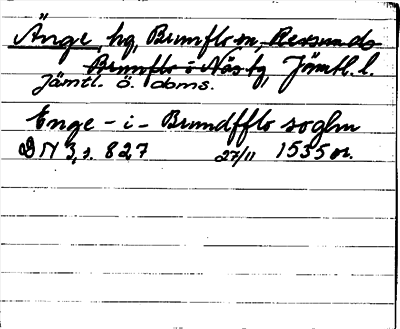 Änge, hg, Brunflo sn, Revsunds
Brunflo i Näs tg, Jämtl. l.
Jämtl. ö. doms.
Enge - i - Brundfflo soghn
DN 3, s. 827 27/11 1535 or.